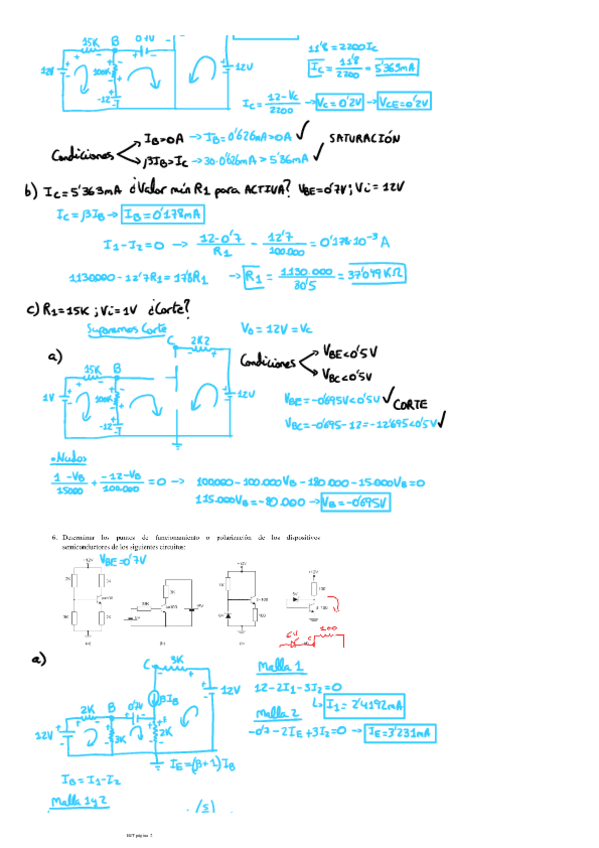 15K B 0'1V
12V 100K -12 12V
11'8 = 2200Ic
Ic = 11'8/2200 = 5'363mA
Ic = 12-Vc/2200 → Vc = 0'2V → VCE = 0'2V
Condiciones
IB>0A → IB = 0'626mA>0A ✓ SATURACIÓN
βIB>Ic → 30·0'626mA > 5'36mA ✓
b) Ic = 5'363mA ¿Valor mín R1 para ACTIVA? VBE=0'7V; Vi = 12V
Ic = βIB → IB = 0'178mA
I1-I2=0 → 12-0'7/R1 - 12'7/100.000 = 0'178·10⁻³A
1130000 - 12'7R1 = 17'8R1 → R1 = 1130.000/30'5 = 37'049KΩ
c) R1=15K ; Vi=1V ¿Corte?
Suponemos Corte
V0 = 12V = Vc
a)
C 2K2
15K B
1V 100K -12 12V
Condiciones
VBE<0'5V
VBC<0'5V
VBE = -0'695V<0'5V ✓ CORTE
VBC = -0'695-12 = -12'695<0'5V ✓
•Nudos
1-VB/15000 + -12-VB/100.000 = 0 → 100.000-100.000VB-180.000-15.000VB=0
115.000VB = -80.000 → VB = -0'695V
6. Determinar los puntos de funcionamiento o polarización de los dispositivos
semiconductores de los siguientes circuitos:
VBE=0'7V
+12V
a)
C 3K
βIB 12V
2K B 0'7V E
12V 3K 2K
IE=(β+1)IB
IB = I1-I2
Malla 1
12-2I1-3I2=0
I1 = 2'4192mA
Malla 2
-0'7-2IE+3I2=0 → IE=3'231mA
Malla 1 y 2